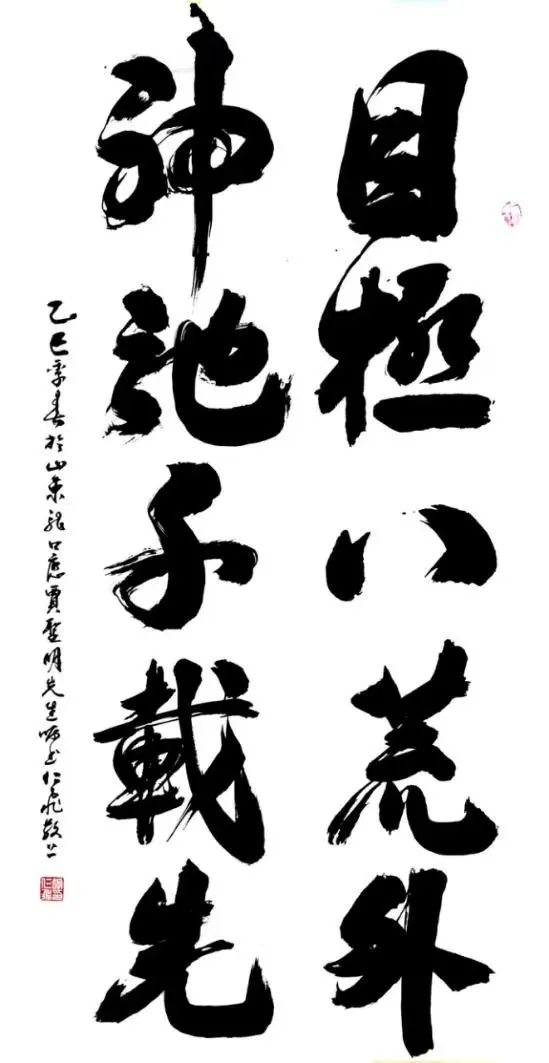 目極八荒外
神馳千載先
乙巳季春於山東龍口應賈聖明先生囑書仁飛敬上